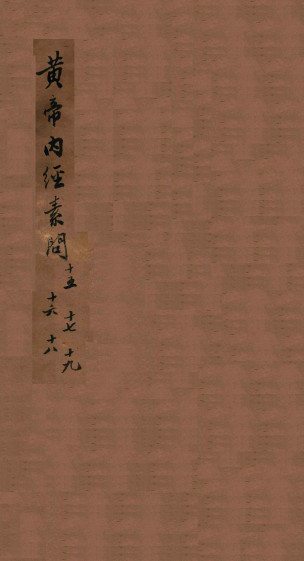 黄帝内經素問
十五
十七
十九
十六
十八